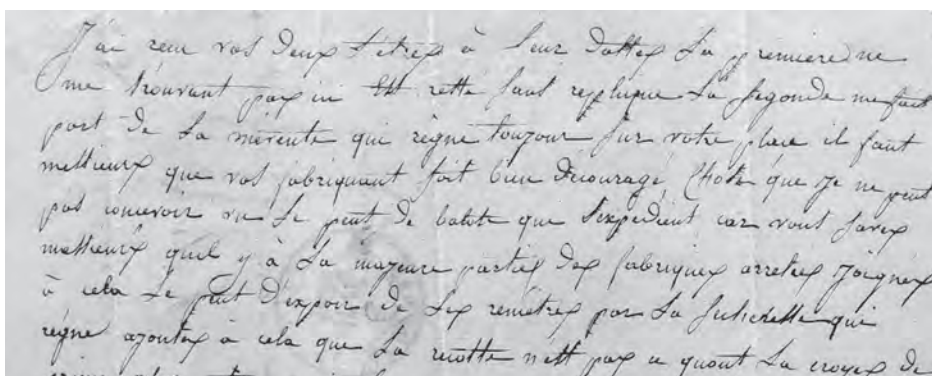 J'ai reçu vos deux Létres à Leur dattes La premiere ne
me trouvant pas ici Est restté sans replique La segonde me fait
part de La mévente qui règne toujour sur votre place il faut
messieurs que vos fabriquant soit bien découragé, Chose que je ne peut
pas concevoir vu Le peut de balots que S'expedient car vous savez
messieurs quil y à La majeure parties des fabriques arretées joignez
à cela Le peut D'espoir de Les remétres par La sécheresse qui
règne ajoutes à cela que La recotte n'est pas ce quont La croyes de